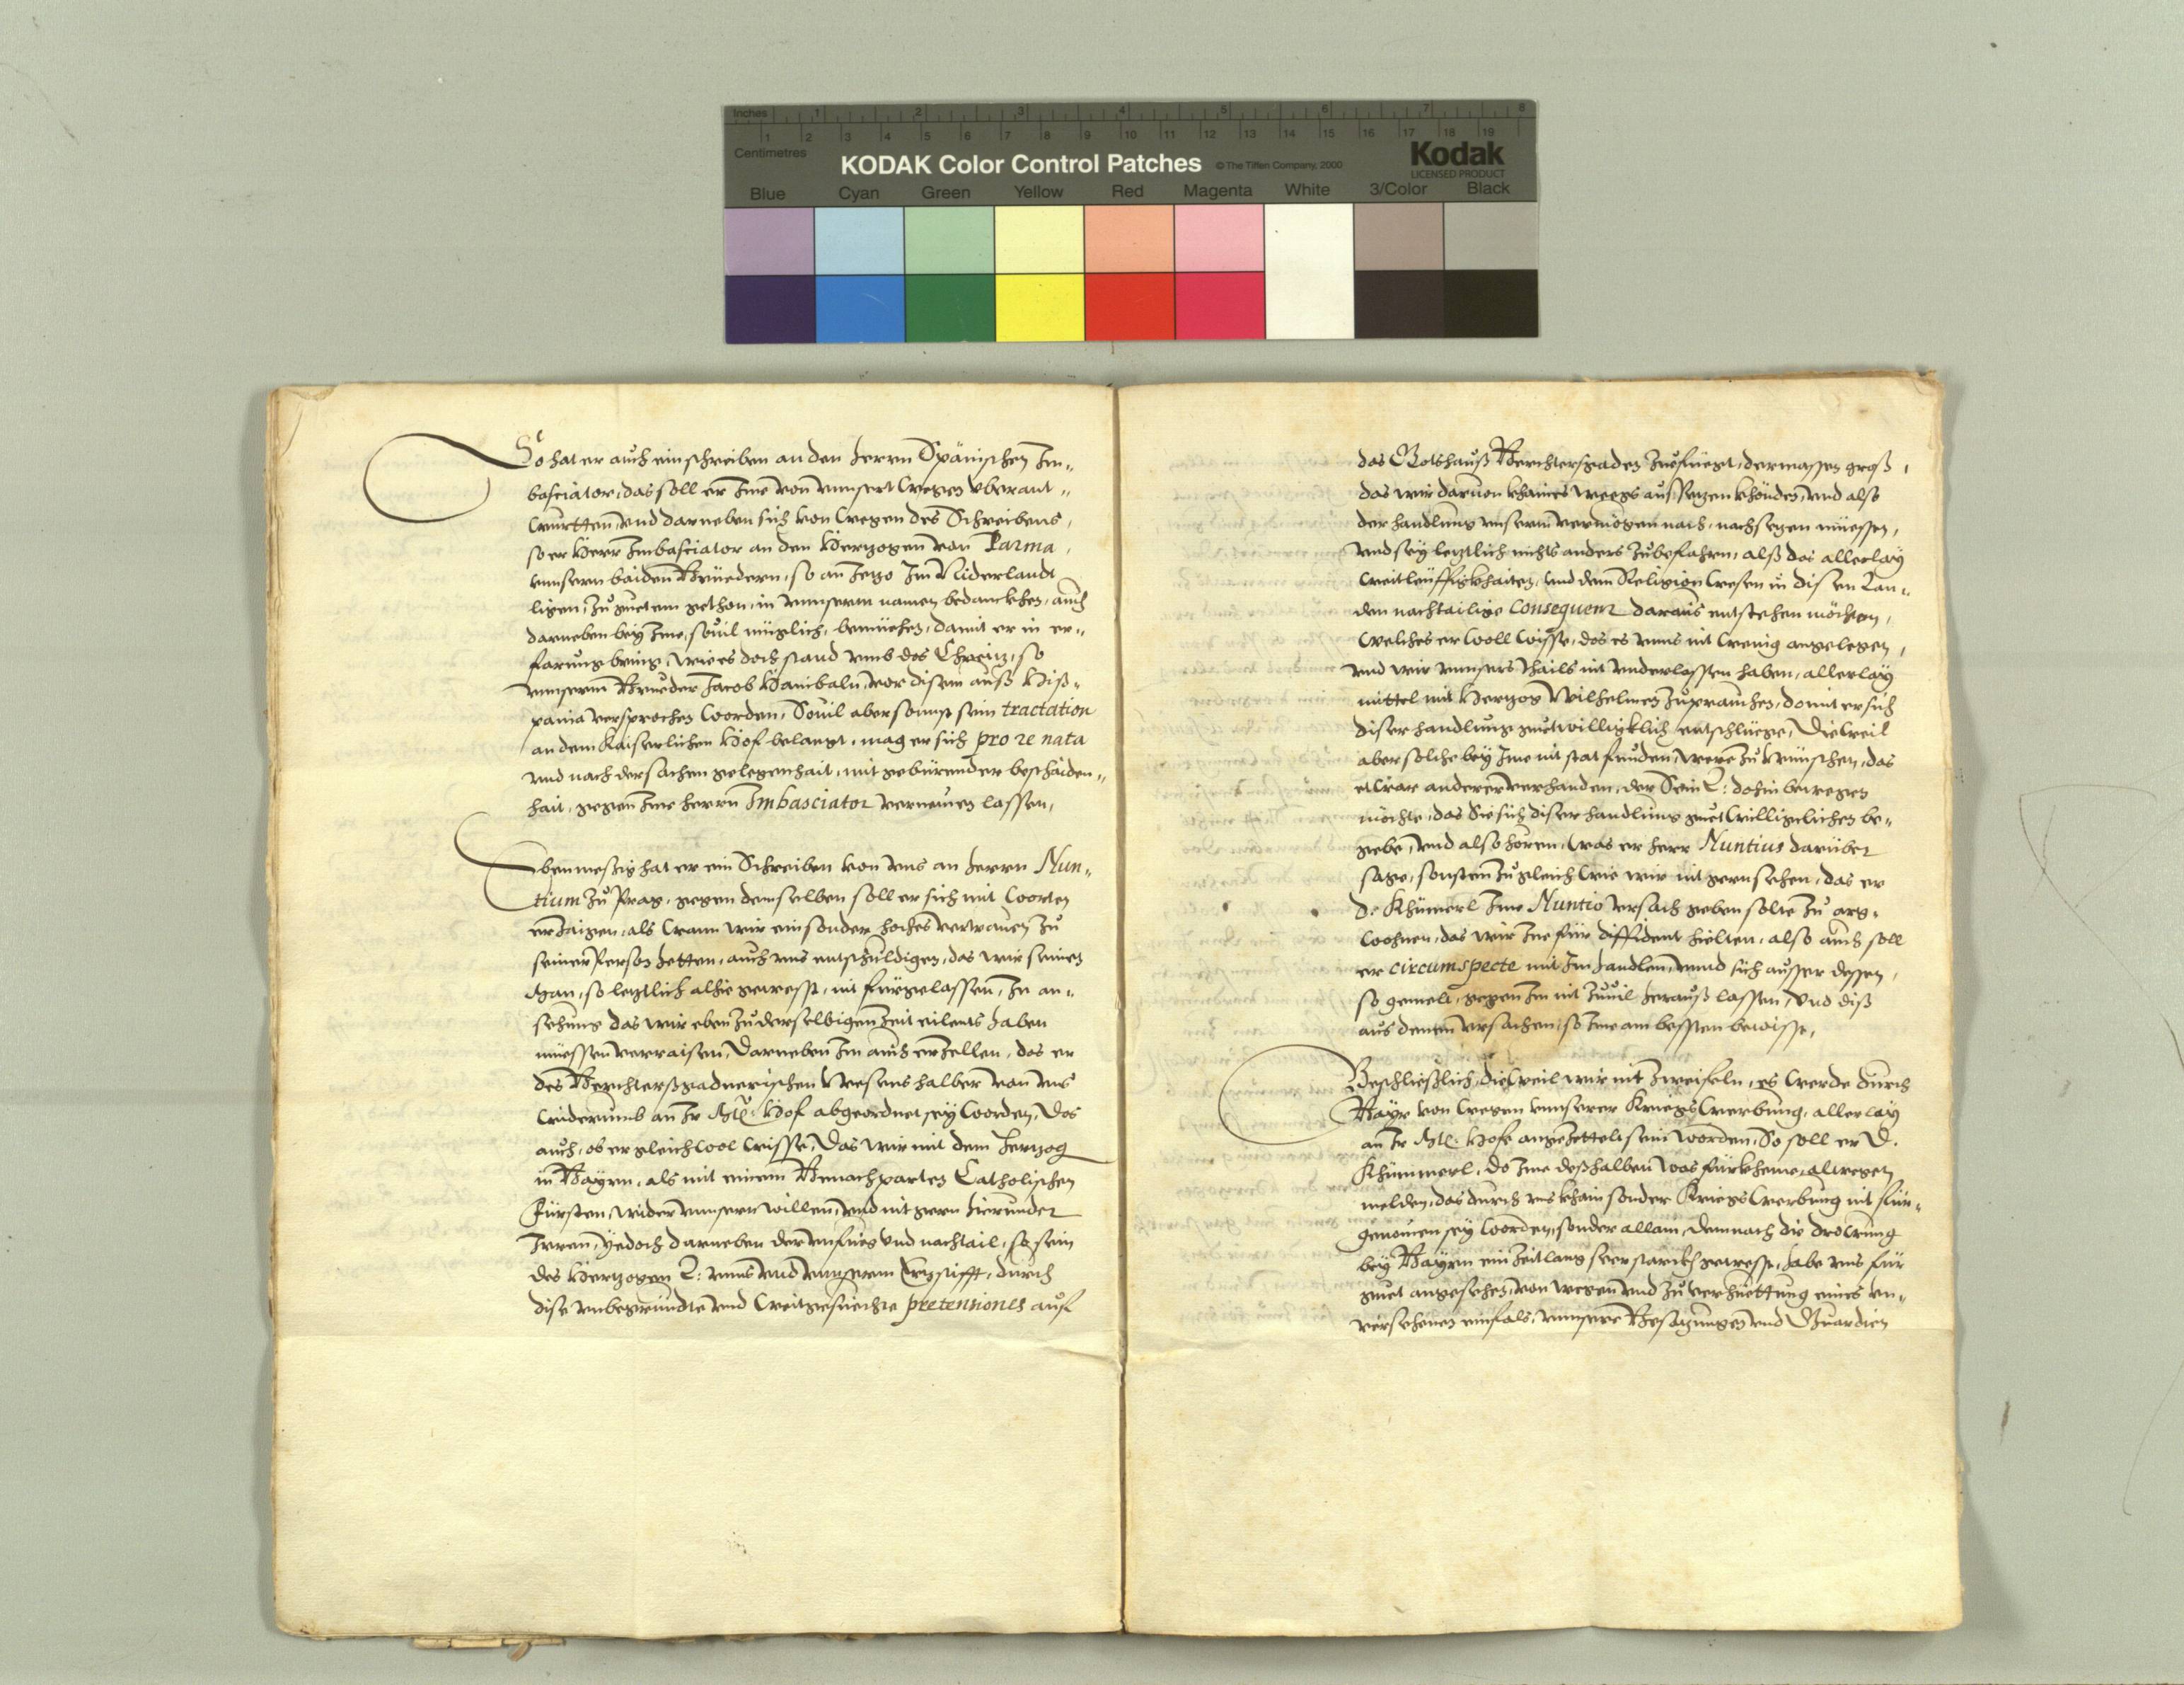 Inches 1 2 3 4 5 6 7 8
Centimetres 1 2 3 4 5 6 7 8 9 10 11 12 13 14 15 16 17 18 19
KODAK Color Control Patches © The Tiffen Company, 2000 Kodak
LICENSED PRODUCT
Blue Cyan Green Yellow Red Magenta White 3/Color Black
So hat er auch ein schreiben an den herrn Spänischen Im„
basciator, das soll er Ime von unnsert wegen uberant„
wurtten, und darneben sich von wegen des Schreibens,
so er Herr Imbasciator an den Hertzogen von Parma,
unnsern baiden Brüedern, so an Jetzo Im Niderlandt
ligen, zu guetem gethon, in unnserm namen bedanckhen, auch
darneben bey Ime, sovil müglich, bemüehen, damit er in er„
farung bring, wie es doch stand umb das Chreitz, so
unnserm Brueder Jacob Hanibaln, vor disem auß Hiß„
pania versprochen worden, Sovil aber sonnst sein tractation
an dem Kaiserlichen Hof belangt, mag er sich pro re nata
und nach der sachen gelegenhait, mit gebürender beschaiden„
hait, gegen Ime herrn Imbasciator vernemen lassen,
Ebenmeßig hat er ein Schreiben von uns an herrn Nun„
tium zu Prag, gegen demselben soll er sich mit worten
erzaigen, als wann wir ein sonder hoches vertrauen zu
seiner Person hetten, auch uns entschuldigen, das wir seinen
Man, so letztlich alhie gewesst, nit fürgelassen, In an„
sehung das wir eben zu derselbigen Zeit eilents haben
müessen verraisen, Darneben Im auch erzellen, das er
des Berchterßgadnerischen Wesens halber von uns
widerumb an Ir Mt: Hof abgeordnet sey worden, Das
auch, ob er gleich wol wisse, Das wir mit dem hertzog
in Bayrn, als mit einem Benachparten Catholischen
Fürsten, wider unnsern willen, und nit gern hierunder
Irren, yedoch darneben der unfueg und nachtail, so sein
des Hertzogen L: unns und unnserm Ertzstifft, durch
dise unbegründte und weitgesuechte pretensiones auf
das Gotshauß Berchtersgaden zuefüegt, dermassen groß,
das wir darvon khaines weegs aussetzen khönden, und also
der handlung unserm vermögen nach, nachsetzen müessen,
und sey letztlich nichts anders zubefahren, alß das allerlay
weitleüffigkhaiten, und dem Religion wesen in disen Lan„
den nachtailige Consequenz daraus entstehen möchten,
welches er woll wisse, das es unns nit wenig angelegen,
und wir unnsers thails nit underlassen haben, allerlay
mittel mit Hertzog Wilhelmen zuprauchen, domit er sich
diser handlung guetwilligklich entschlüege, Dieweil
aber solche bey Ime nit stat finden, were zu wünschen, das
etwar anderer verhanden, der Sein L: dohin bewegen
möchte, das Sie sich diser handlung guetwilligclichen be„
gebe, und also hören, was er herr Nuntius darüber
sage, sonsten zugleich wie wir nit gern sehen, das er
D. Khümerl Ime Nuntio ursach geben solte zu arg„
wohnen, das wir Ine für diffident hielten, also auch soll
er circumspecte mit Im handlen, unnd sich ausser dessen,
so gemelt, gegen Im nit zuvil herauß lassen, und diß
aus denen ursachen, so Ime am bessten bewisst,
Beschließlich, dieweil wir nit zweifeln, es werde durch
Bayr von wegen unnserer Kriegs werbung, allerlay
an Ir Mt: Hofe angezettelt sein worden, So soll er D.
Khümmerl, do Ime deßhalben was fürkheme, alwegen
melden, das durch uns khain sonder Kriegs werbung nit für„
genomen sey worden, sonder allain, demnach die drowung
bey Bayrn ein Zeitlang seer starckh gewesst, habe uns für
guet angesehen, von wegen und zu verhüettung eines un„
versehenen einfals, unnsere Besatzungen und Guardien